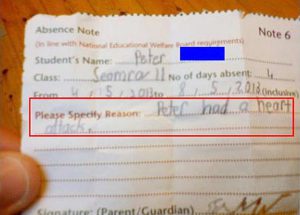 Absence Note
Note 6
(In line with National Educational Welfare Board requirements)
Student's Name: Peter
Class: Seomra 11 No of days absent: 4
From 4, 5, 2013 to 8, 5, 2013 (Inclusive)
Please Specify Reason: Peter had a heart
attack.
Signature: (Parent/Guardian)